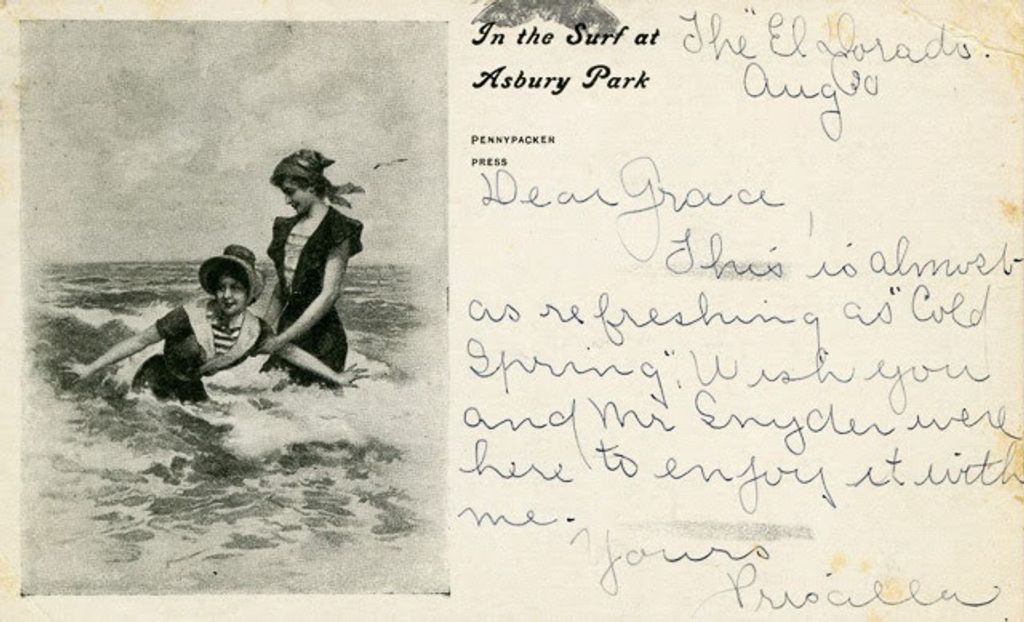 In the Surf at
Asbury Park
PENNYPACKER
PRESS
The "El Dorado.
Aug 30
Dear Grace,
This is almost
as refreshing as "Cold
Spring". Wish you
and Mr Snyder were
here to enjoy it with
me.
Yours
Priscilla